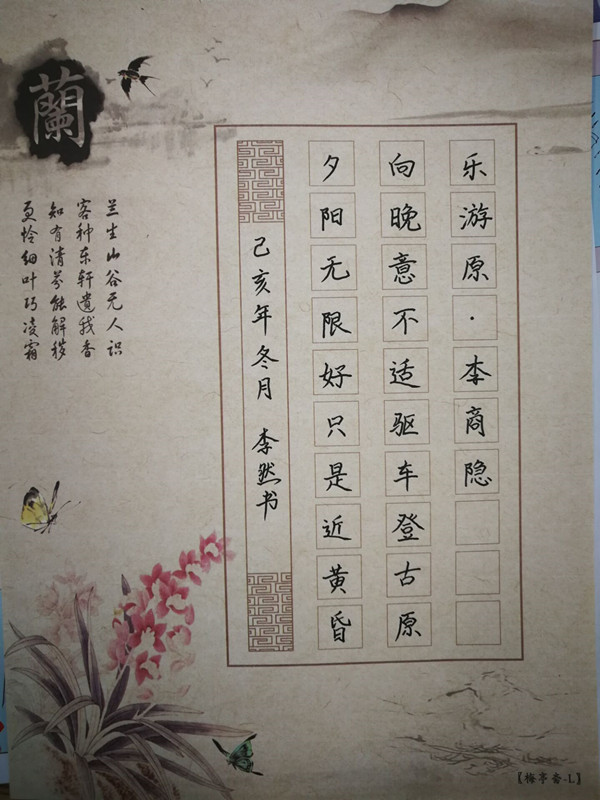 乐游原·李商隐
向晚意不适驱车登古原
夕阳无限好只是近黄昏
己亥年冬月 李然书
蘭
兰生山谷无人识
客种东轩遗我香
知有清芬能解秽
更怜细叶巧凌霜
【梅亭斋-L】